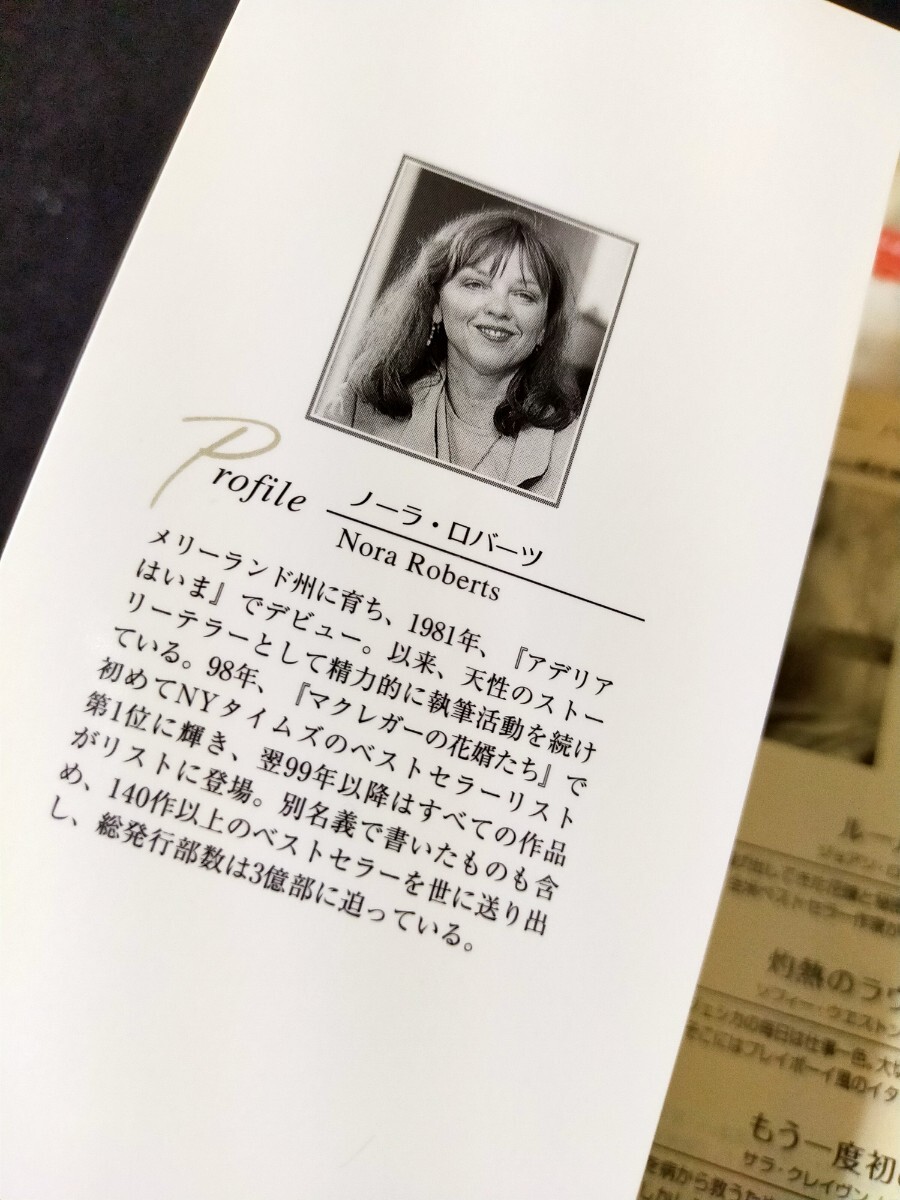 Profile
ノーラ・ロバーツ
Nora Roberts
メリーランド州に育ち、1981年、『アデリア
はいま』でデビュー。以来、天性のストー
リーテラーとして精力的に執筆活動を続け
ている。98年、『マクレガーの花婿たち』で
初めてNYタイムズのベストセラーリスト
第1位に輝き、翌99年以降はすべての作品
がリストに登場。別名義で書いたものも含
め、140作以上のベストセラーを世に送り出
し、総発行部数は3億部に迫っている。
灼熱のラ
ソフィー・ウエストン
ジェシカの毎日は仕事一色。大切
そこにはプレイボーイ風のイタ
もう一度初
サラ・クレイヴン